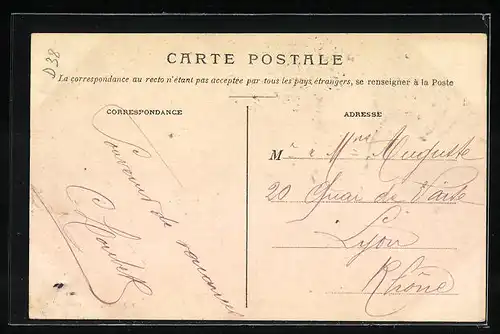 D38
CARTE POSTALE
La correspondance au recto n'étant pas acceptée par tous les pays étrangers, se renseigner à la Poste
CORRESPONDANCE
Souvenir de
ADRESSE
M Auguste
20 Quai de Vaise
Lyon
Rhône